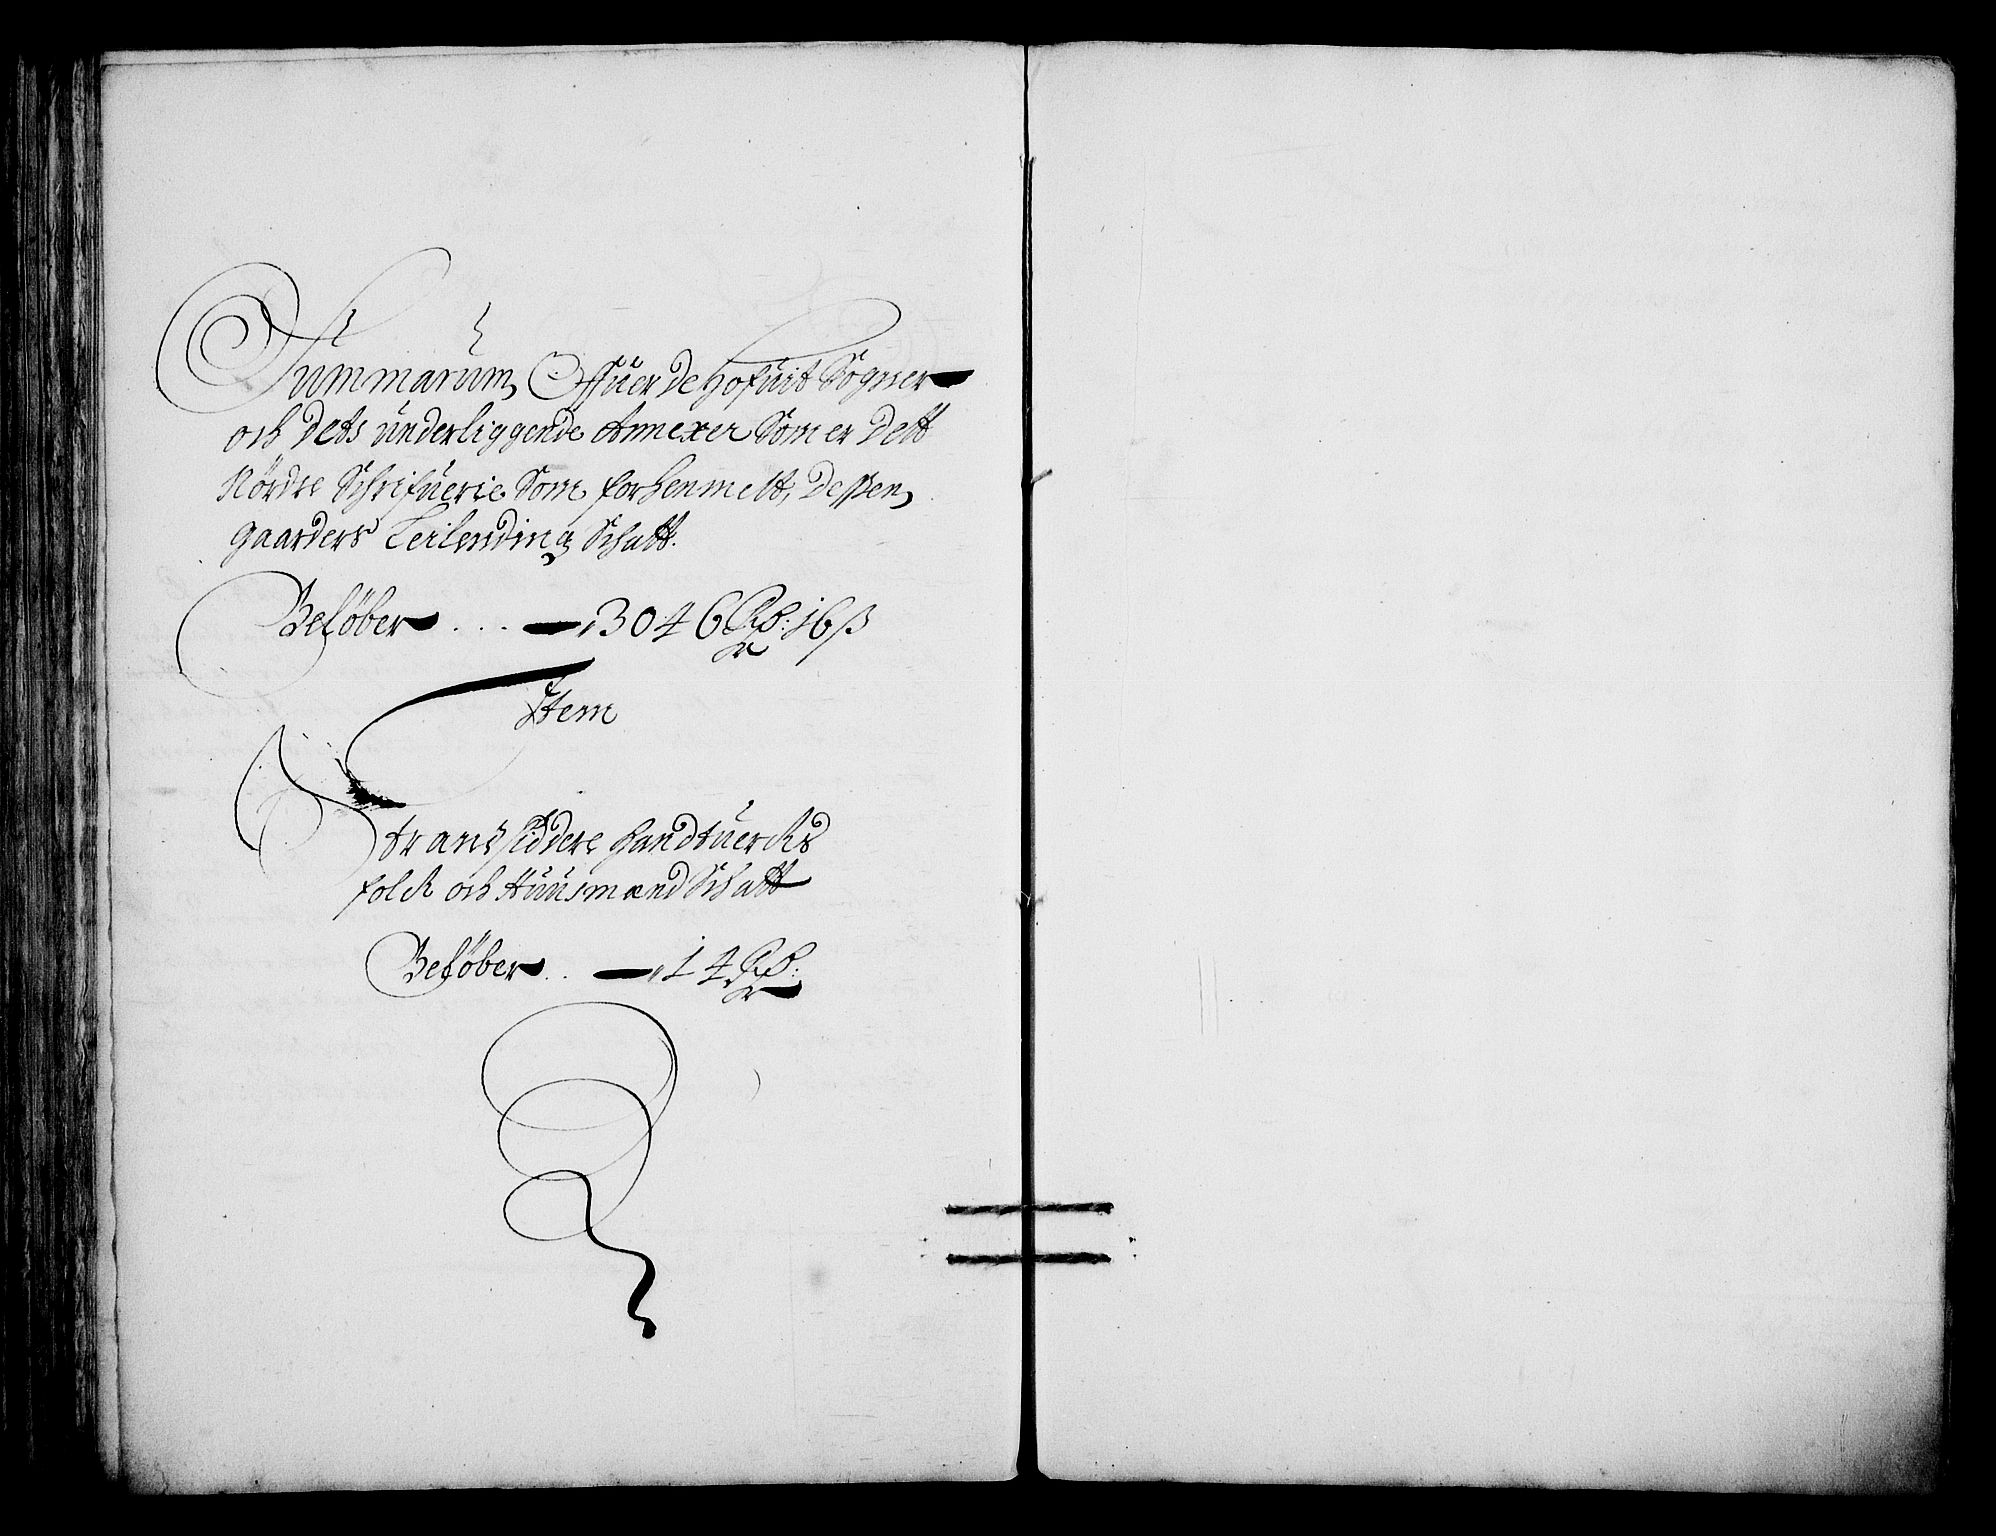 Summarum Offuer de Hofuit Sogner
och dets underliggende Annexer Som er dett
Nördre Schrifuerie Som forhenmelt, dessen
gaarders Leilending Schatt.
Belöber . . . 3046 Rdr: 16 ß
Item
Strandsiddere handtuercks
folck och Huusmænd Schatt
Belöber . . 14 Rdr: